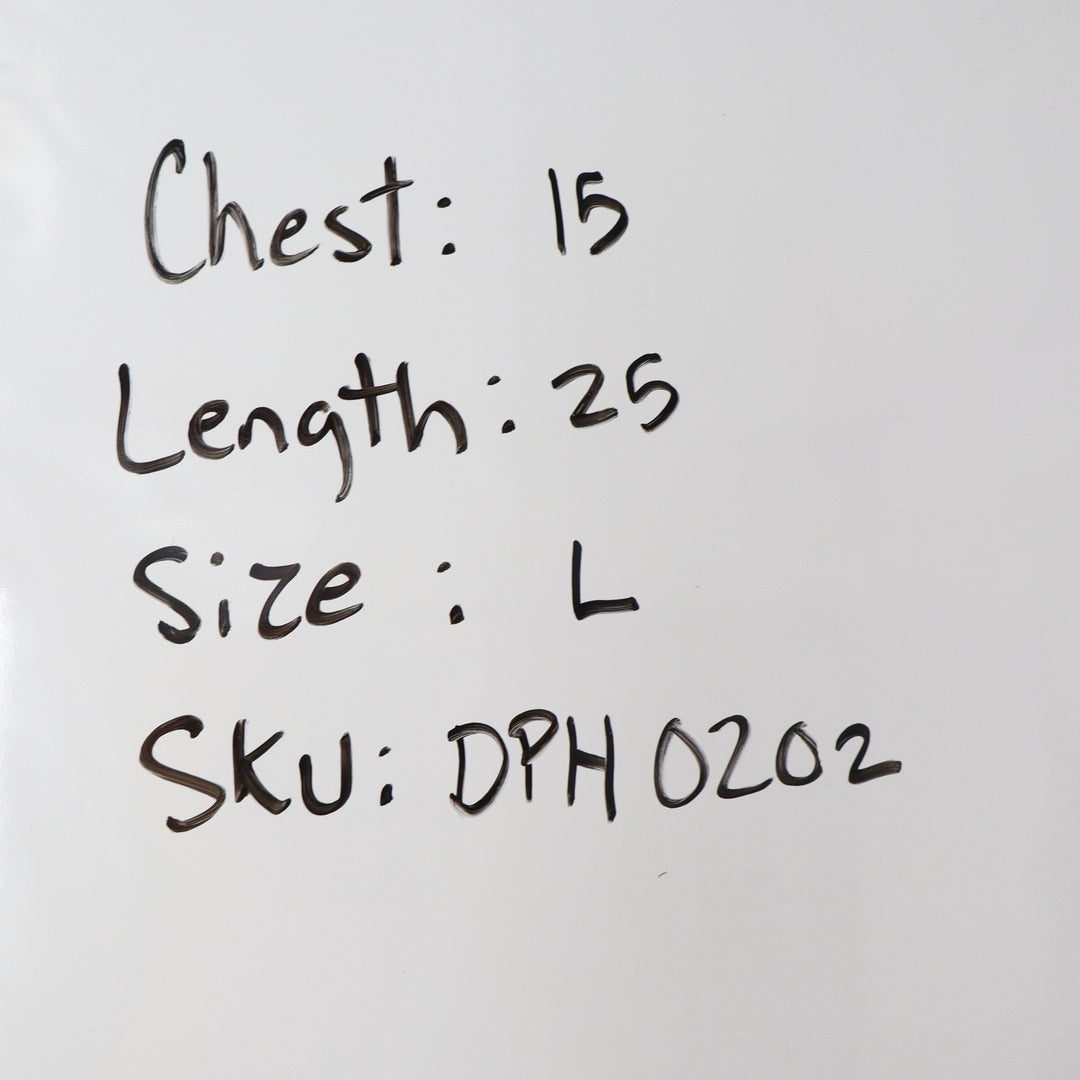 Chest: 15
Length: 25
Size : L
SKU: DPH0202